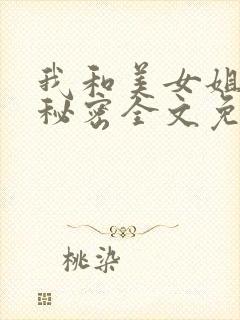 我和美女姐
秘密全文免
桃染